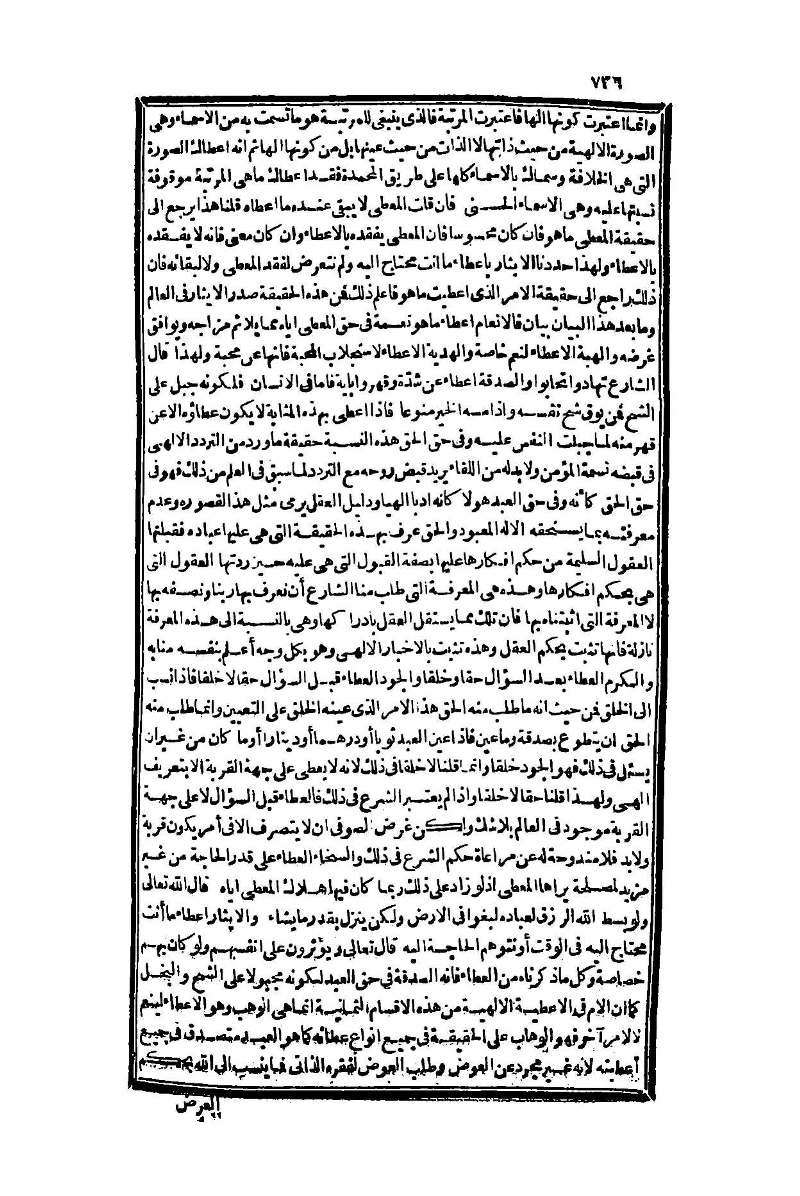 ٧٣٦
وانما اعتبرت كونها الها فاعتبرت المرتبة فالذى ينبغى للمرتبة هو ما تسمت به من الاسماء وهى
الصورة الالهية من حيث ذاتها لا الذات من حيث عينها بل من كونها الها ثم انه اعطاك الصورة
التى هى الخلافة وسماك بالاسماء كلها على طريق المحمدة فقد اعطاك ما هى المرتبة موقوفة
نسبتها عليه وهى الاسماء الحسنى فان قلت المعطى لا يبقى عنده ما اعطاه قلنا هذا يرجع الى
حقيقة المعطى ما هو فان كان محسوسا فان المعطى يفقده بالاعطاء وان كان معنى فانه لا يفقده
بالاعطاء ولهذا حددنا الايثار باعطاء ما انت محتاج اليه ولم نتعرض لفقد المعطى ولا لبقائه فان
ذلك راجع الى حقيقة الامر الذى اعطيت ما هو فاعلم ذلك فمن هذه الحقيقة صدر الايثار فى العالم
وما بعد هذا البيان بيان فالانعام اعطاء ما هو نعمة فى حق المعطى اياه مما يلائم مزاجه ويوافق
غرضه والهبة الاعطاء لنعم خاصة والهدية الاعطاء لاستجلاب المحبة فانها عن محبة ولهذا قال
الشارع تهادوا تحابوا والصدقة اعطاء عن شدة وقهر واباية فاما فى الانسان فلكونه جبل على
الشح فمن يوق شح نفسه واذا مسه الخير منوعا فاذا اعطى بهذه المثابة لا يكون عطاؤه الا عن
قهر منه لما جبلت النفس عليه وفى حق الحق هذه النسبة حقيقة ما ورد من التردد الالهى
فى قبضه نسمة المؤمن ولا بد له من اللقاء يريد قبض روحه مع التردد لما سبق فى العلم من ذلك فهو فى
حق الحق كأنه وفى حق العبد هو لا كانه ادبا الهيا ودليل العقل يرمى مثل هذا لقصوره وعدم
معرفته بما يستحقه الاله المعبود والحق عرف بهذه الحقيقة التى هى عليها عباده فقبلتها
العقول السليمة من حكم افكارها عليها بصفة القبول التى هى عليه حين ردتها العقول التى
هى بحكم افكارها وهذه هى المعرفة التى طلب منا الشارع أن نعرف بها ربنا ونصفه بها
لا المعرفة التى اثبتناه بها فان تلك مما يستقل العقل بادراكها وهى بالنسبة الى هذه المعرفة
نازلة فانها تثبت بحكم العقل وهذه تثبت بالاخبار الالهى وهو بكل وجه أعلم بنفسه منا به
والكرم العطاء بعد السؤال حقا وخلقا والجود العطاء قبل السؤال حقا لا خلقا فاذا نسب
الى الخلق فمن حيث انه ما طلب منه الحق هذا الامر الذى عينه الخلق على التعيين وانما طلب منه
الحق ان يتطوع بصدقة وما عين فاذا عين العبد ثوبا أو درهما أو دينارا أو ما كان من غير ان
يسئل فى ذلك فهو الجود خلقا وانما قلنا لا خلقا فى ذلك لانه لا يعطى على جهة القربة الا بتعريف
الهى ولهذا قلنا حقا لا خلقا واذا لم يعتبر الشرع فى ذلك فالعطاء قبل السؤال لا على جهة
القربة موجود فى العالم بلا شك ولكن غرض الصوفى ان لا يتصرف الا فى أمر يكون قربة
ولا بد فلا مندوحة له عن مراعاة حكم الشرع فى ذلك والسخاء العطاء على قدر الحاجة من غير
مزيد لمصلحة يراها المعطى اذ لو زاد على ذلك ربما كان فيه اهلاك المعطى اياه قال الله تعالى
ولو بسط الله الرزق لعباده لبغوا فى الارض ولكن ينزل بقدر ما يشاء والايثار اعطاء ما أنت
محتاج اليه فى الوقت أو توهم الحاجة اليه قال تعالى ويؤثرون على انفسهم ولو كان بهم
خصاصة وكل ما ذكرناه من العطاء فانه الصدقة فى حق العبد لكونه مجبولا على الشح والبخل
كما ان الام فى الاعطية الالهية من هذه الاقسام الثمانية انما هى الوهب وهو الاعطاء لينعم
لا لامر آخر فهو الوهاب على الحقيقة فى جميع انواع عطائه كما هو العبد متصدق فى جميع
أعطيته لانه غير مجرد عن العوض وطلب العوض لفقره الذاتى فما ينسب الى الله بحكم
العرض